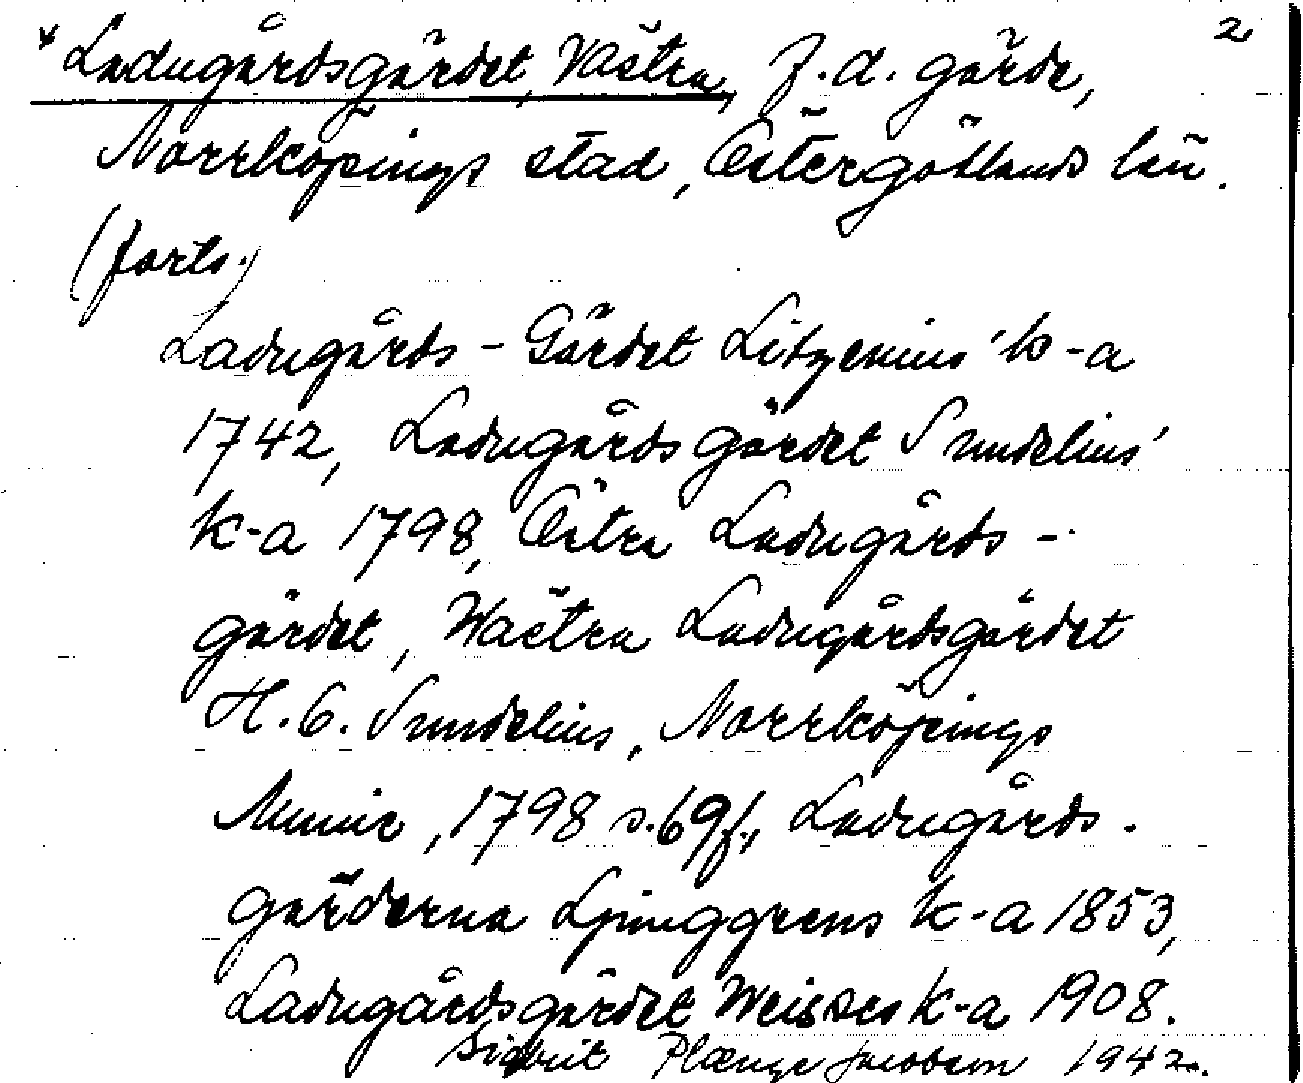 2
* Ladugårdsgärdet, Västra, f.d. gärde,
Norrköpings stad, Östergötlands län.
(forts.)
Ladugårds-Gärdet Litzenius' k-a
1742, Ladugårdsgärdet Sundelius'
k-a 1798, Östra Ladugårds-
gärdet, Wästra Ladugårdsgärdet
H. O. Sundelius, Norrköpings
Minne, 1798 s. 69 f., Ladugårds-
gärderna Ljunggrens k-a 1853,
Ladugårdsgärdet k-a 1908.
Sigurit Plænge Jacobson 1942.